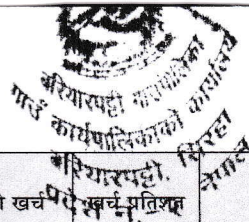 बरियारपट्टी गाउँपालिका
गाउँ कार्यपालिकाको कार्यालय
बरियारपट्टी, सिरहा
नेपाल
खर्च
खर्च प्रतिशत